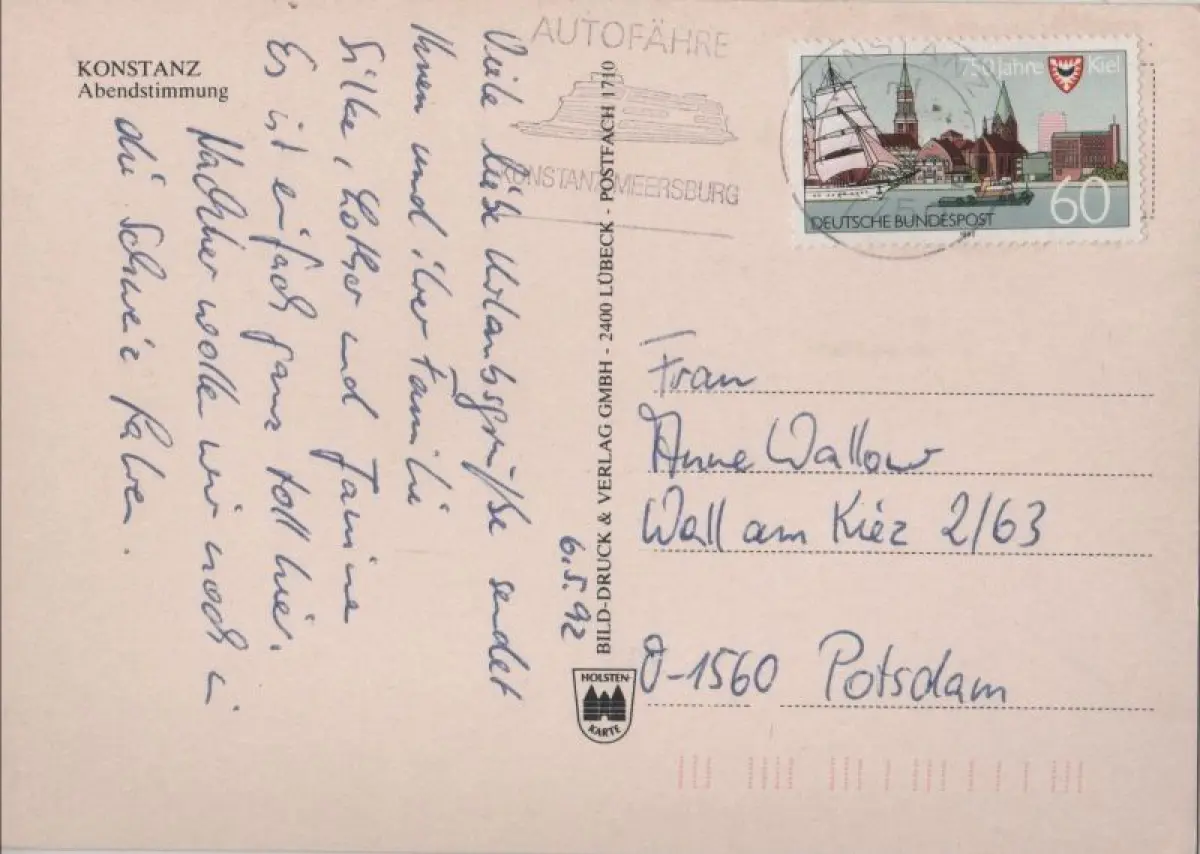 KONSTANZ
Abendstimmung
AUTOFÄHRE
KONSTANZ-MEERSBURG
KONSTANZ
750 Jahre Kiel
DEUTSCHE BUNDESPOST
60
1992
Viele liebe Urlaubsgrüße sendet
Ihnen und ihrer Familie
Silke, Lothar und Janine
Es ist einfach ganz toll hier.
Nachher wollen wir noch in
die Schweiz fahren.
6.5.92
BILD-DRUCK & VERLAG GMBH - 2400 LÜBECK - POSTFACH 1710
HOLSTEN-
KARTE
Frau
Anne Wallow
Wall am Kiez 2/63
O-1560 Potsdam